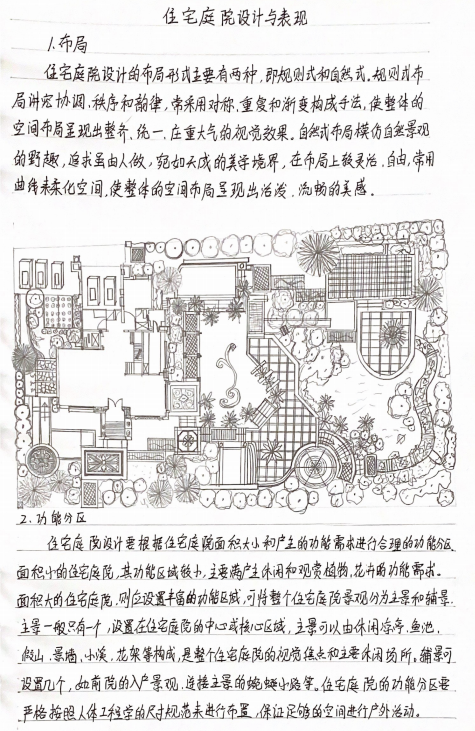 住宅庭院设计与表现
1.布局
住宅庭院设计的布局形式主要有两种,即规则式和自然式。规则式布
局讲究协调、秩序和韵律,常采用对称、重复和渐变构成手法,使整体的
空间布局呈现出整齐、统一、庄重大气的视觉效果。自然式布局模仿自然景观
的野趣,追求虽由人做,宛如天成的美学境界,在布局上较灵活、自由,常用
曲线来柔化空间,使整体的空间布局呈现出活泼、流畅的美感。
2.功能分区
住宅庭院设计要根据住宅庭院面积大小和户主的功能需求进行合理的功能分区,
面积小的住宅庭院,其功能区域较小,主要满户主休闲和观赏植物,花卉的功能需求。
面积大的住宅庭院,则应设置丰富的功能区域,可将整个住宅庭院景观分为主景和辅景,
主景一般只有一个,设置在住宅庭院的中心或核心区域,主景可以由休闲凉亭、鱼池、
假山、景墙、小溪、花架等构成,是整个住宅庭院的视觉焦点和主要休闲场所。辅景可
设置几个,如南院的入户景观,连接主景的蜿蜒小路等。住宅庭院的功能分区要
严格按照人体工程学的尺寸规范来进行布置,保证足够的空间进行户外活动。